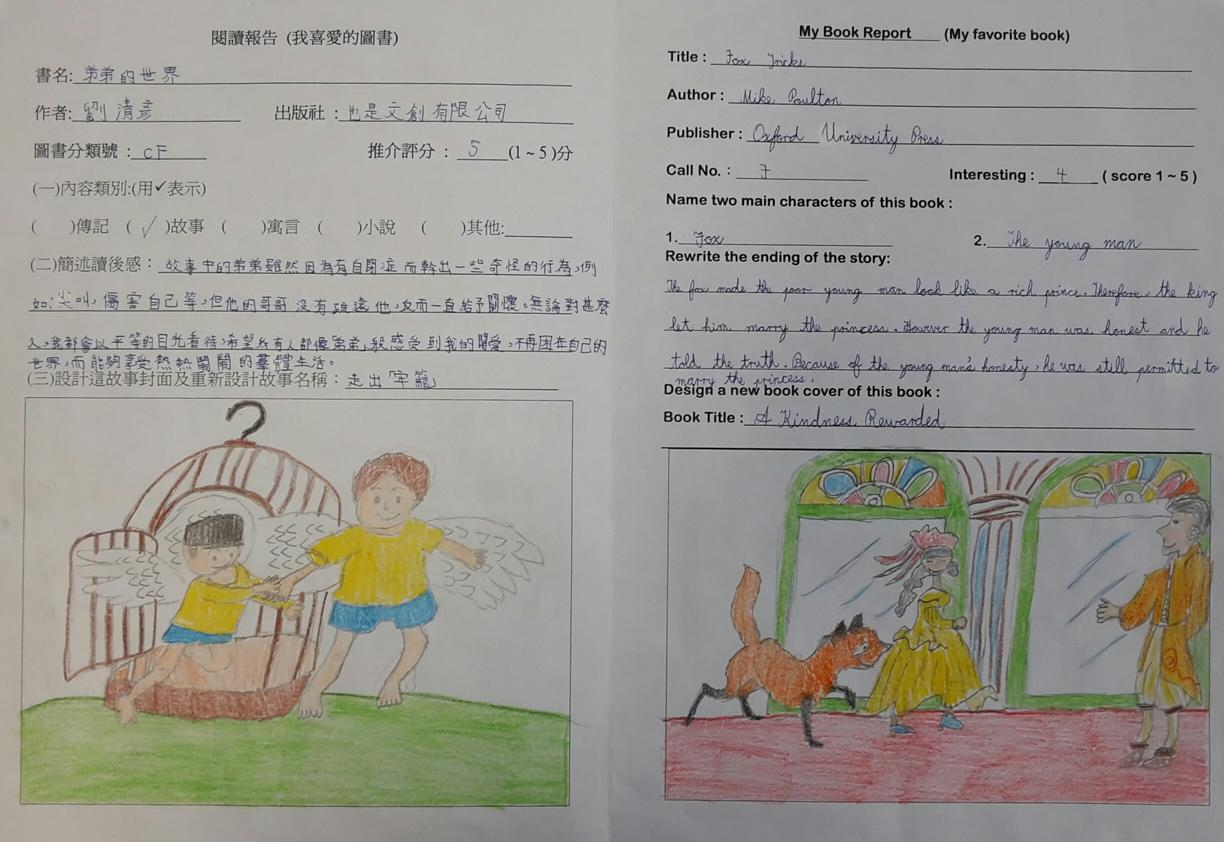 閱讀報告 (我喜愛的圖書)
書名: 弟弟的世界
作者: 劉清彥 出版社 : 也是文創有限公司
圖書分類號 : CF 推介評分 : 5 (1 ~ 5 )分
(一)內容類別:(用✓表示)
( )傳記 ( √ )故事 ( )寓言 ( )小說 ( )其他:
(二)簡述讀後感： 故事中的弟弟雖然因為有自閉症而幹出一些奇怪的行為,例
如:尖叫,傷害自己等,但他的哥哥沒有疏遠他,反而一直給予關懷。無論對甚麼
人,我都會以平等的目光看待,希望所有人都像弟弟般感受到我的關愛,不再困在自己的
世界,而能夠享受熱熱鬧鬧的羣體生活。
(三)設計這故事封面及重新設計故事名稱： 走出「牢籠」
My Book Report (My favorite book)
Title : Fox Tricks
Author : Mike Poulton
Publisher : Oxford University Press
Call No. : F Interesting : 4 ( score 1 ~ 5 )
Name two main characters of this book :
1. Fox 2. The young man
Rewrite the ending of the story:
The fox made the poor young man look like a rich prince. Therefore, the king
let him marry the princess. However the young man was honest and he
told the truth. Because of the young man's honesty, he was still permitted to
marry the princess.
Design a new book cover of this book :
Book Title : A Kindness Rewarded